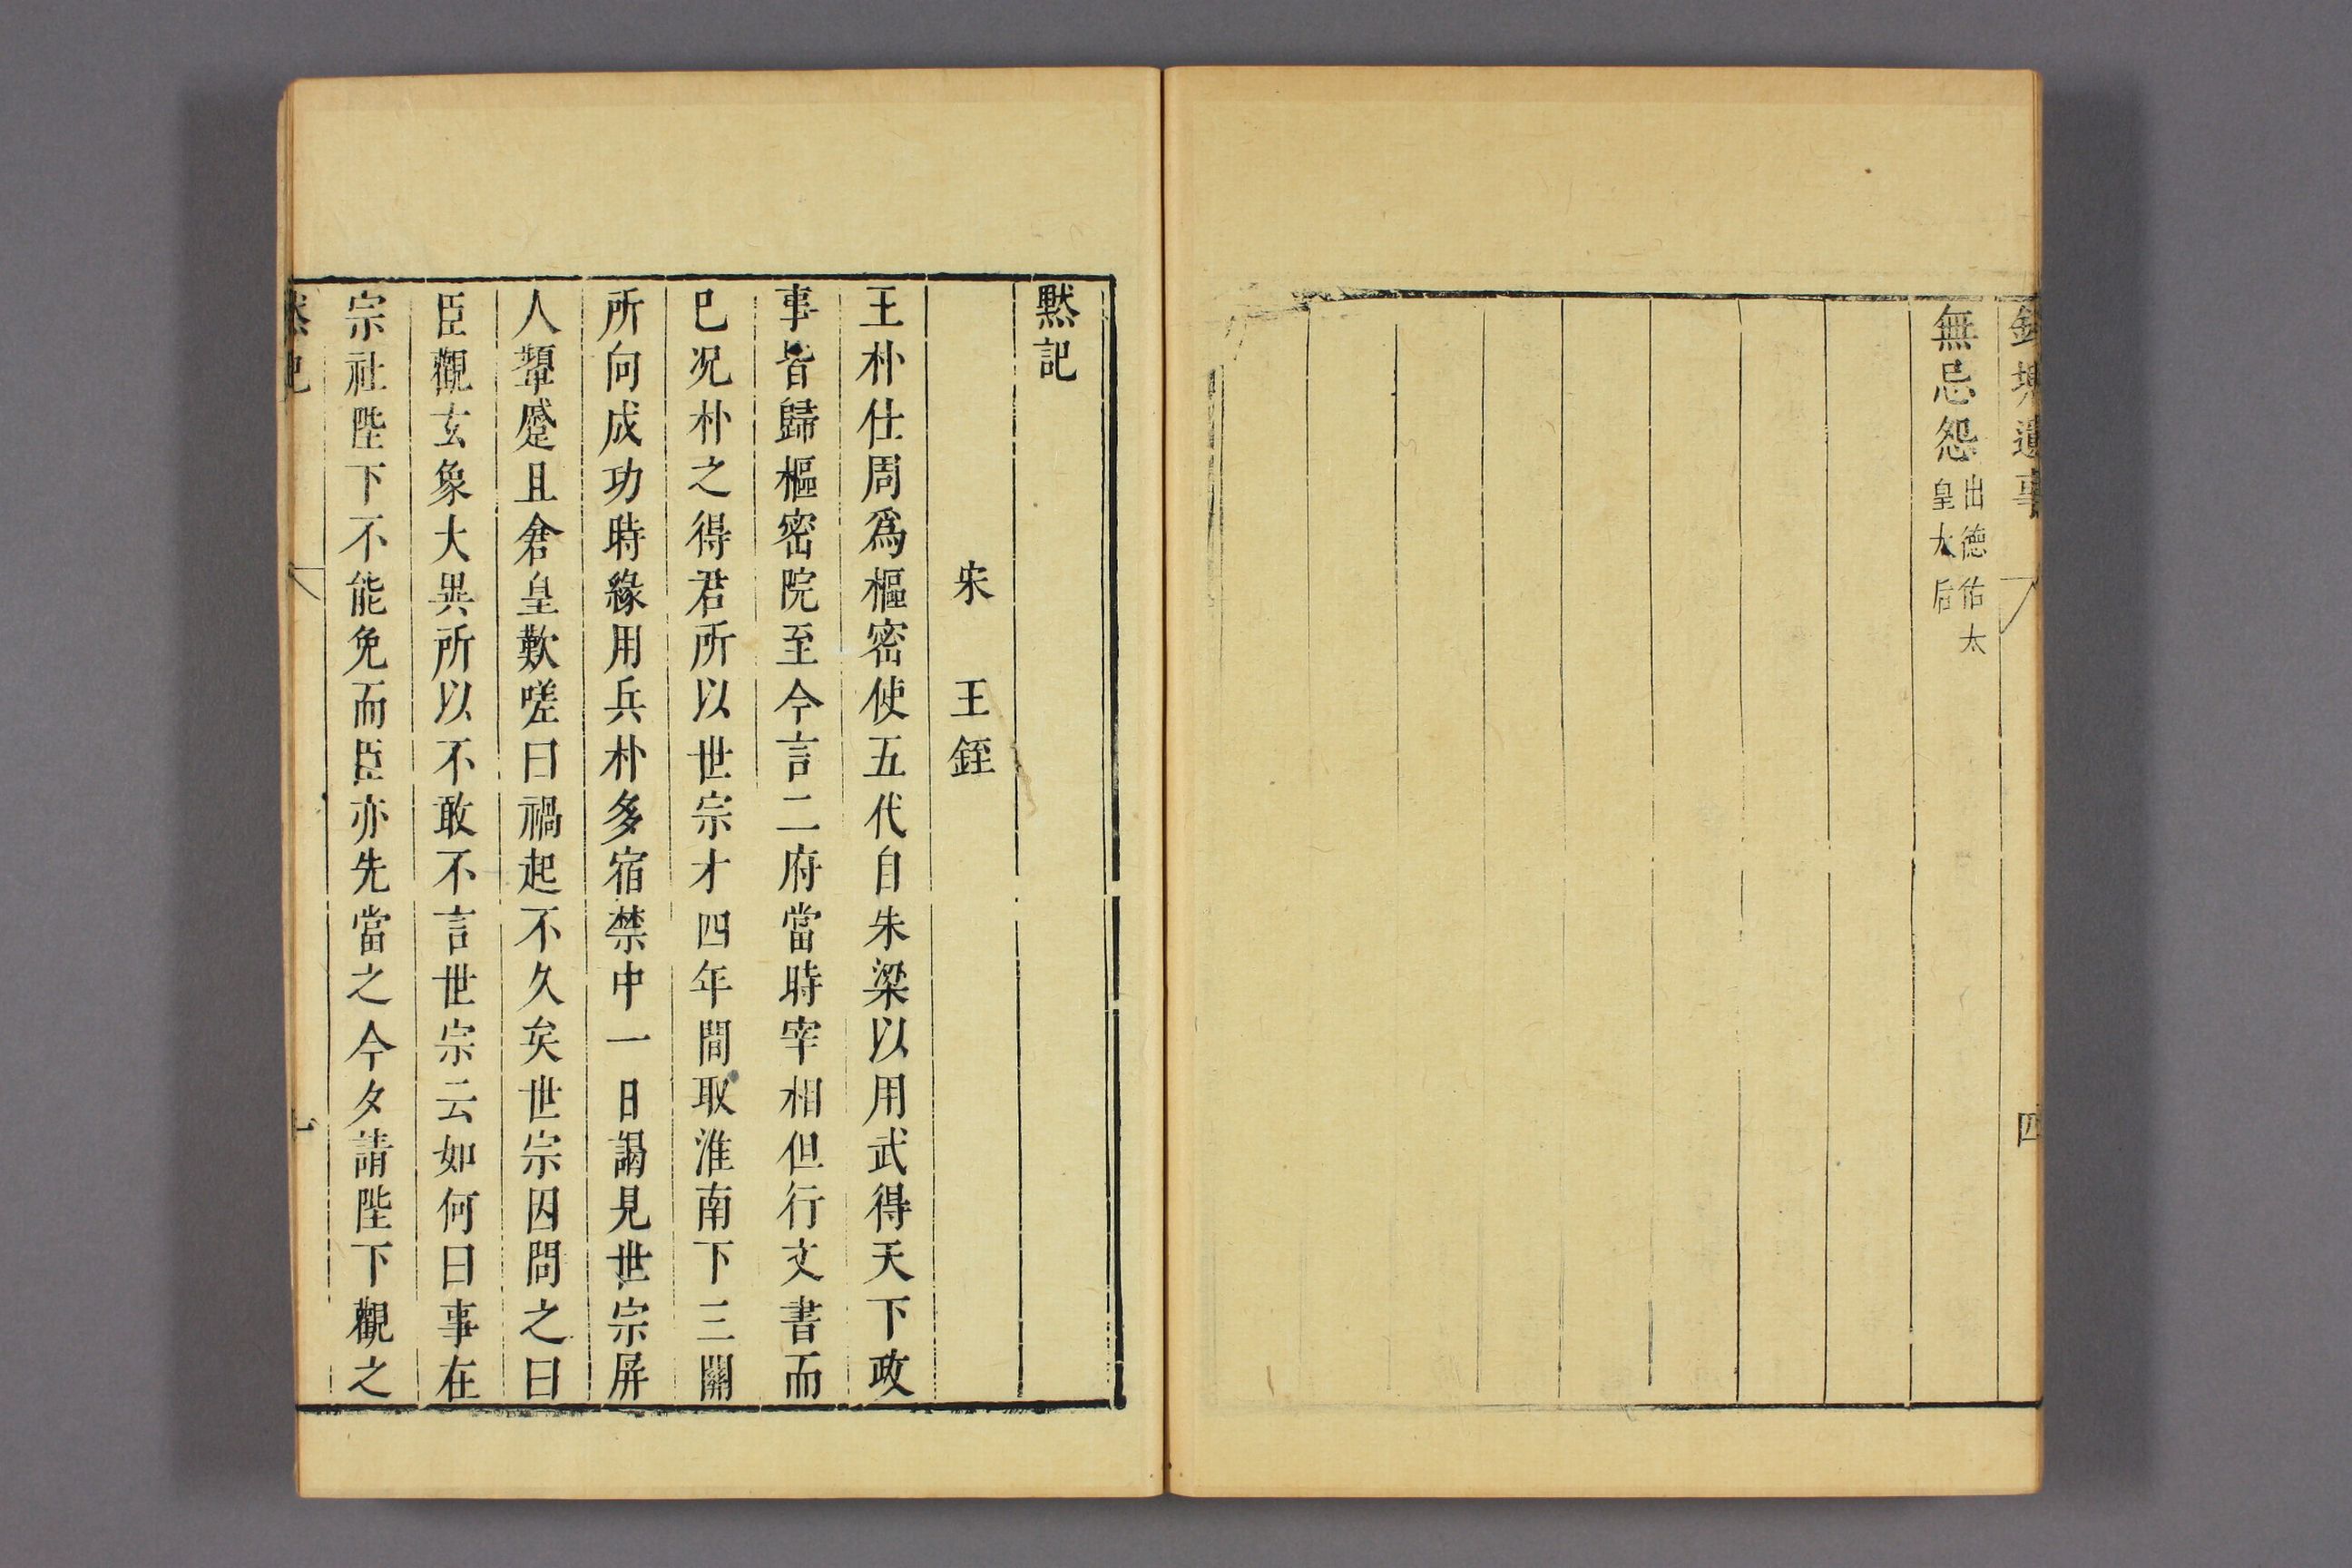 遺事
四
無忌怨出德佑太皇太后
默記
宋 王銍
王朴仕周爲樞密使五代自朱梁以用武得天下政
事皆歸樞密院至今言二府當時宰相但行文書而
巳况朴之得君所以世宗才四年間取淮南下三關
所向成功時緣用兵朴多宿禁中一日謁見世宗屏
人顰蹙且倉皇歎嗟曰禍起不久矣世宗因問之曰
臣觀玄象大異所以不敢不言世宗云如何曰事在
宗社陛下不能免而臣亦先當之今夕請陛下觀之
默記
一